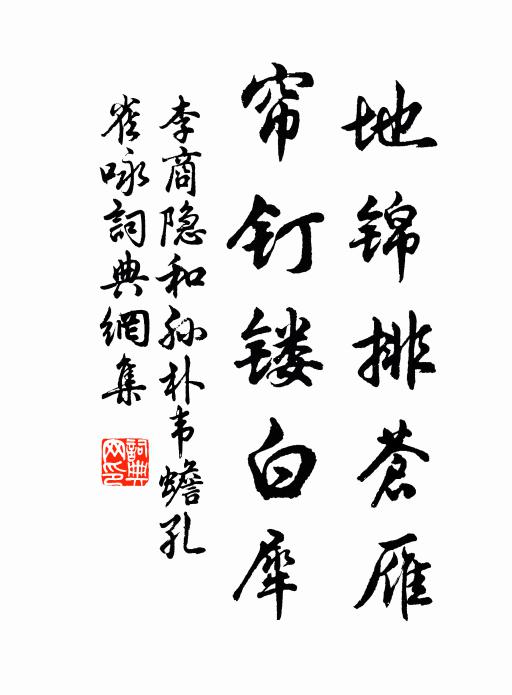 地锦排苍雁
帘钉镂白犀
李商隐和孙朴韦蟾孔
雀咏詞典網集
詞典网印